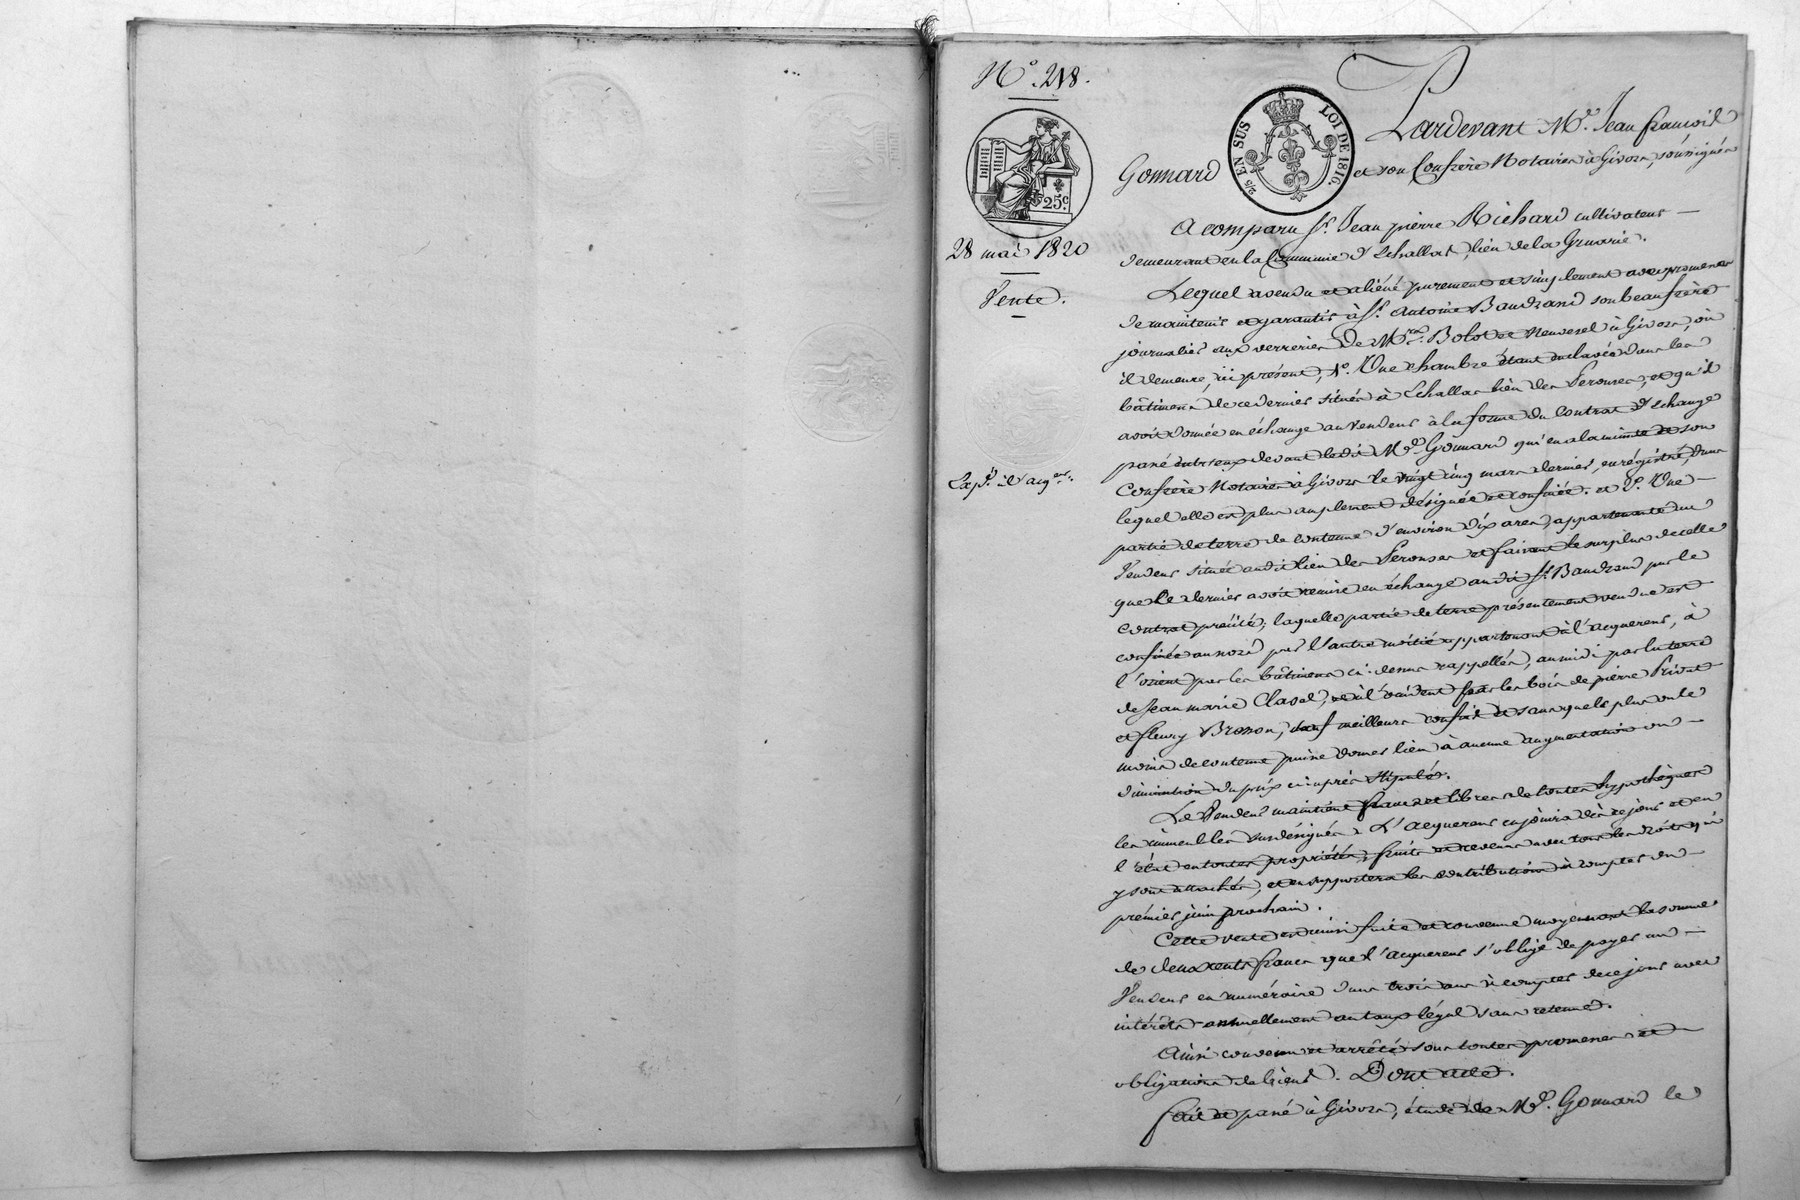 N.° 218.
2/5 EN SUS
LOI DE 1816.
25.c
28 mai 1820
Vente.
Exp.é à l'acq.eur.
Pardevant M.e Jean françois
Gonnard et son Confrère Notaires à Givors, soussignés
A comparu S.r Jean pierre Richard cultivateur
demeurant en la Commune d'Echallas, lieu de la Gruarie.
Lequel a vendu et aliéné purement et simplement avec promesse
de maintenir et garantir à S.r Antoine Baudrand son beaufrère
journalier aux verreries de M.rs Bolot et Neuvesel à Givors, où
il demeure, ici présent, 1.° Une chambre étant enclavée dans les
bâtimens de ce dernier situés à Echallas lieu des Seronses, et qu'il
avoit donnée en échange au vendeur à la forme du contrat d'échange
passé entr'eux devant ledit M.e Gonnard qui en a la minute et son
Confrère Notaires à Givors le vingt cinq mars dernier, enrégistré, dans
lequel elle est plus amplement désignée et confinée. et 2.° Une
partie de terre de contenue d'environ dix ares, appartenante au
Vendeur située audit lieu des Seronses et faisant le surplus de celle
que ce dernier avoit remise en échange audit S.r Baudrand par le
contrat précité; laquelle partie de terre présentement vendue est
confinée au nord par l'autre moitié appartenant à l'acquereur, à
l'orient par les bâtimens ci-dessus rappellés, au midi par la terre
de Jean marie Claval, et à l'occident par les bois de pierre Privat
et fleury Brosson, sauf meilleurs confins et sans que le plus ou le
moins de contenue puisse donner lieu à aucune augmentation ou
diminution du prix ci-après stipulé.
Le Vendeur maintient francs et libres de toutes hypothèques
les immeubles susdésignés. L'acquereur en jouira dès ce jour et en
l'état en toutes propriétés, fruits et revenus avec tous les droits qui
y sont attachés, et en supportera les contributions à compter du
prémier juin prochain.
Cette vente est ainsi faite et convenue moyennant la somme
de deux cents francs que l'acquereur s'oblige de payer au
Vendeur en numéraire dans trois ans à compter de ce jour avec
intérêts annuellement au taux légal sans retenue.
Ainsi convenu et arrêté sous toutes promesses et
obligations de biens. Dont acte.
fait et passé à Givors, étude de M.e Gonnard le